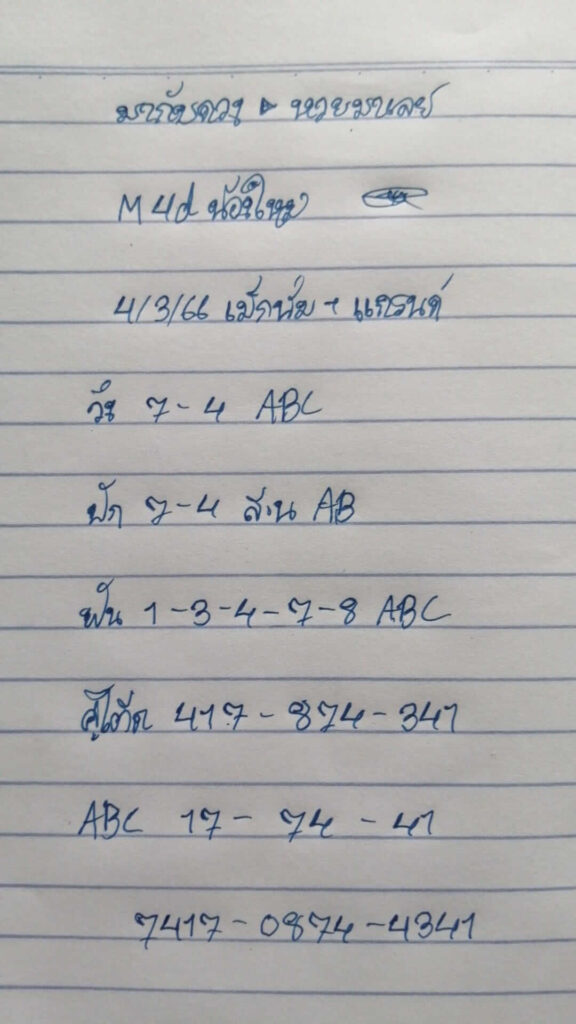 มากับดวง ▸ หวยมาเลย์
M 4d น้องใหม่
4/3/66 เม็กนั่ม + แกรนด์
วิ่ง 7-4 ABC
ปัก 7-4 ส่วน AB
ฟัน 1-3-4-7-8 ABC
คู่โต๊ด 417-874-341
ABC 17 - 74 - 41
7417-0874-4341